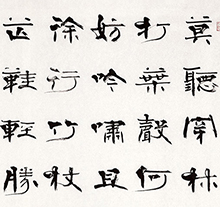 莫聽穿林
打葉聲何
妨吟嘯且
徐行竹杖
芒鞋輕勝